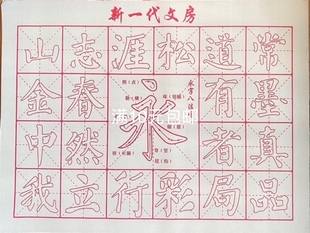 新一代文房
山志涯松道常
金春有墨
永字八法
永
满15元包邮
中然者真
我立行彩局品